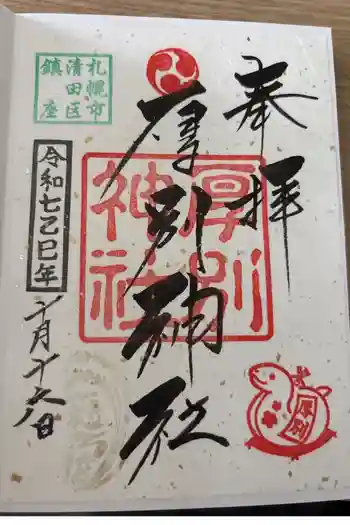 奉拝
厚別神社
厚別
神社
札幌市
清田区
鎮座
令和七乙巳年
十月十六日
厚別